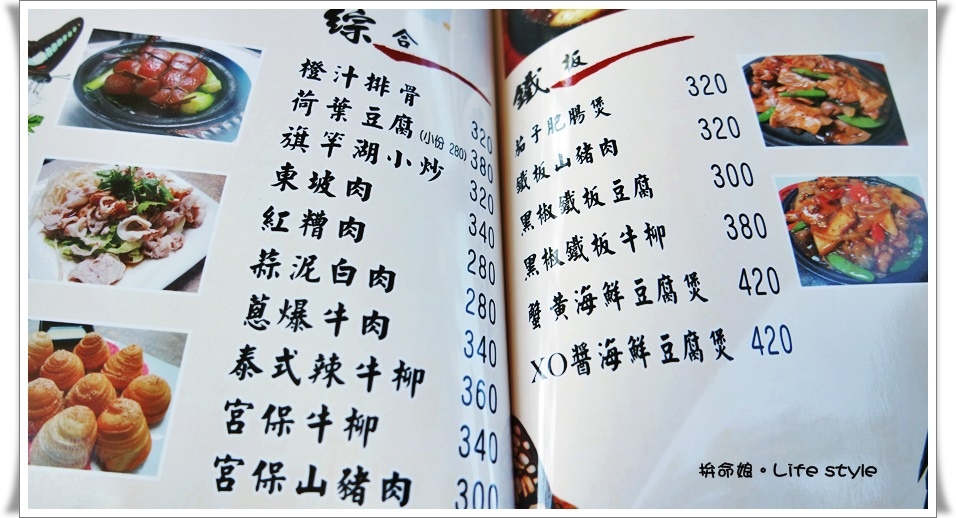 綜合
橙汁排骨 320
荷葉豆腐(小份 280) 380
旗竿湖小炒 320
東坡肉 340
紅糟肉 280
蒜泥白肉 280
蔥爆牛肉 340
泰式辣牛柳 360
宮保牛柳 340
宮保山豬肉 300
鐵板
茄子肥腸煲 320
鐵板山豬肉 320
黑椒鐵板豆腐 300
黑椒鐵板牛柳 380
蟹黃海鮮豆腐煲 420
XO醬海鮮豆腐煲 420
拚命娘。Life style